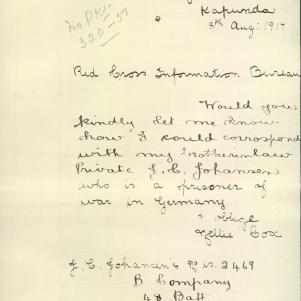 Kapunda
5th Aug: 1917
Red Cross Information Bureau
Would you
kindly let me know
how I could correspond
with my Brotherinlaw
Private J. C. Johansen
who is a prisoner of
war in Germany
& Oblige
Nellie Cox
J. C. Johansen's No is 2469
B Company
48 Batt